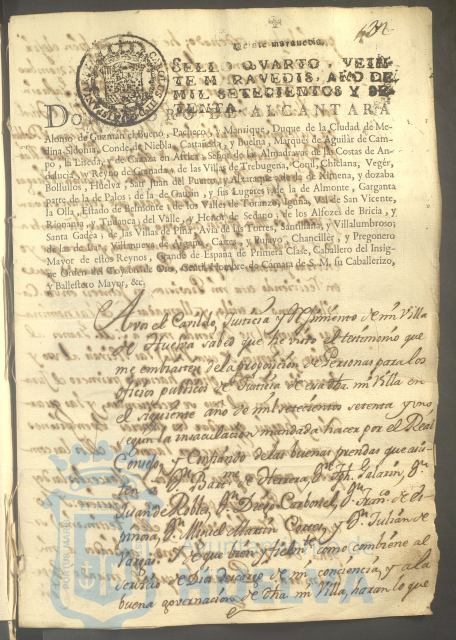 Veinte maravedis.
SELLO QVARTO, VEIN-
TE MARAVEDIS, AÑO DE
MIL SETECIENTOS Y SE-
TENTA.
DON PEDRO DE ALCANTARA
Alonso de Guzman el Bueno, Pacheco, y Manrique, Duque de la Ciudad de Me-
dina-Sidonia, Conde de Niebla, Castañeda, y Buelna, Marqués de Aguilàr de Cam-
pò, la Liseda, y de Cazaza en Africa, Señor de las Almadravas de las Costas de An-
dalucia, y Reyno de Granada, de las Villas de Trebugena, Conil, Chiclana, Vegèr,
Bollullos, Huelva, San Juan del Puerto, y Alxaraque, de la de Ximena, y dozaba
parte de la de Palos; de la de Gausin, y sus Lugares; de la de Almonte, Garganta
la Olla, Estado de Belmonte; de los Valles de Toranzo, Iguña, Val de San Vicente,
Rionansa, y Tudanca; del Valle, y Honor de Sedano; de los Alfozes de Bricia, y
Santa Gadea; de las Villas de Piña, Avia de las Torres, Santillana, y Villalumbroso;
de las de Isar, Villanueva de Argaño, Cartes, y Pujayo, Chancillèr, y Pregonero
Mayor de estos Reynos, Grande de España de Primera Clase, Caballero del Insig-
ne Orden del Toyson de Oro, Gentil-Hombre de Cámara de S. M. su Caballerizo,
y Ballestero Mayor, &c.
A vos el Cavildo, Justicia y Regimiento de mi Villa
de Huelva Saved que he visto el testimonio que
me embiasteis de la proposicion de Personas para los
oficios publicos de Justicia de esa dha. mi Villa en
el siguiente año de mil setecientos setenta y uno
segun la insaculacion mandada hacer por el Real
Consejo, y Confiando de las buenas prendas que asis-
ten a Dn. de Herrera, Dn. Jph. Salazin, Dn.
Juan de Robles, Dn. Diego Carbonel, Dn. Franco. de Es-
pinosa, Dn. Miguel Martin Cortes, y Dn. Julian de
Vargas. Y de que bien y fielmte. como combiene al
servicio de Dios descargo de mi conciencia, y a la
buena governacion de dha. mi Villa, haran lo que
HUELVA